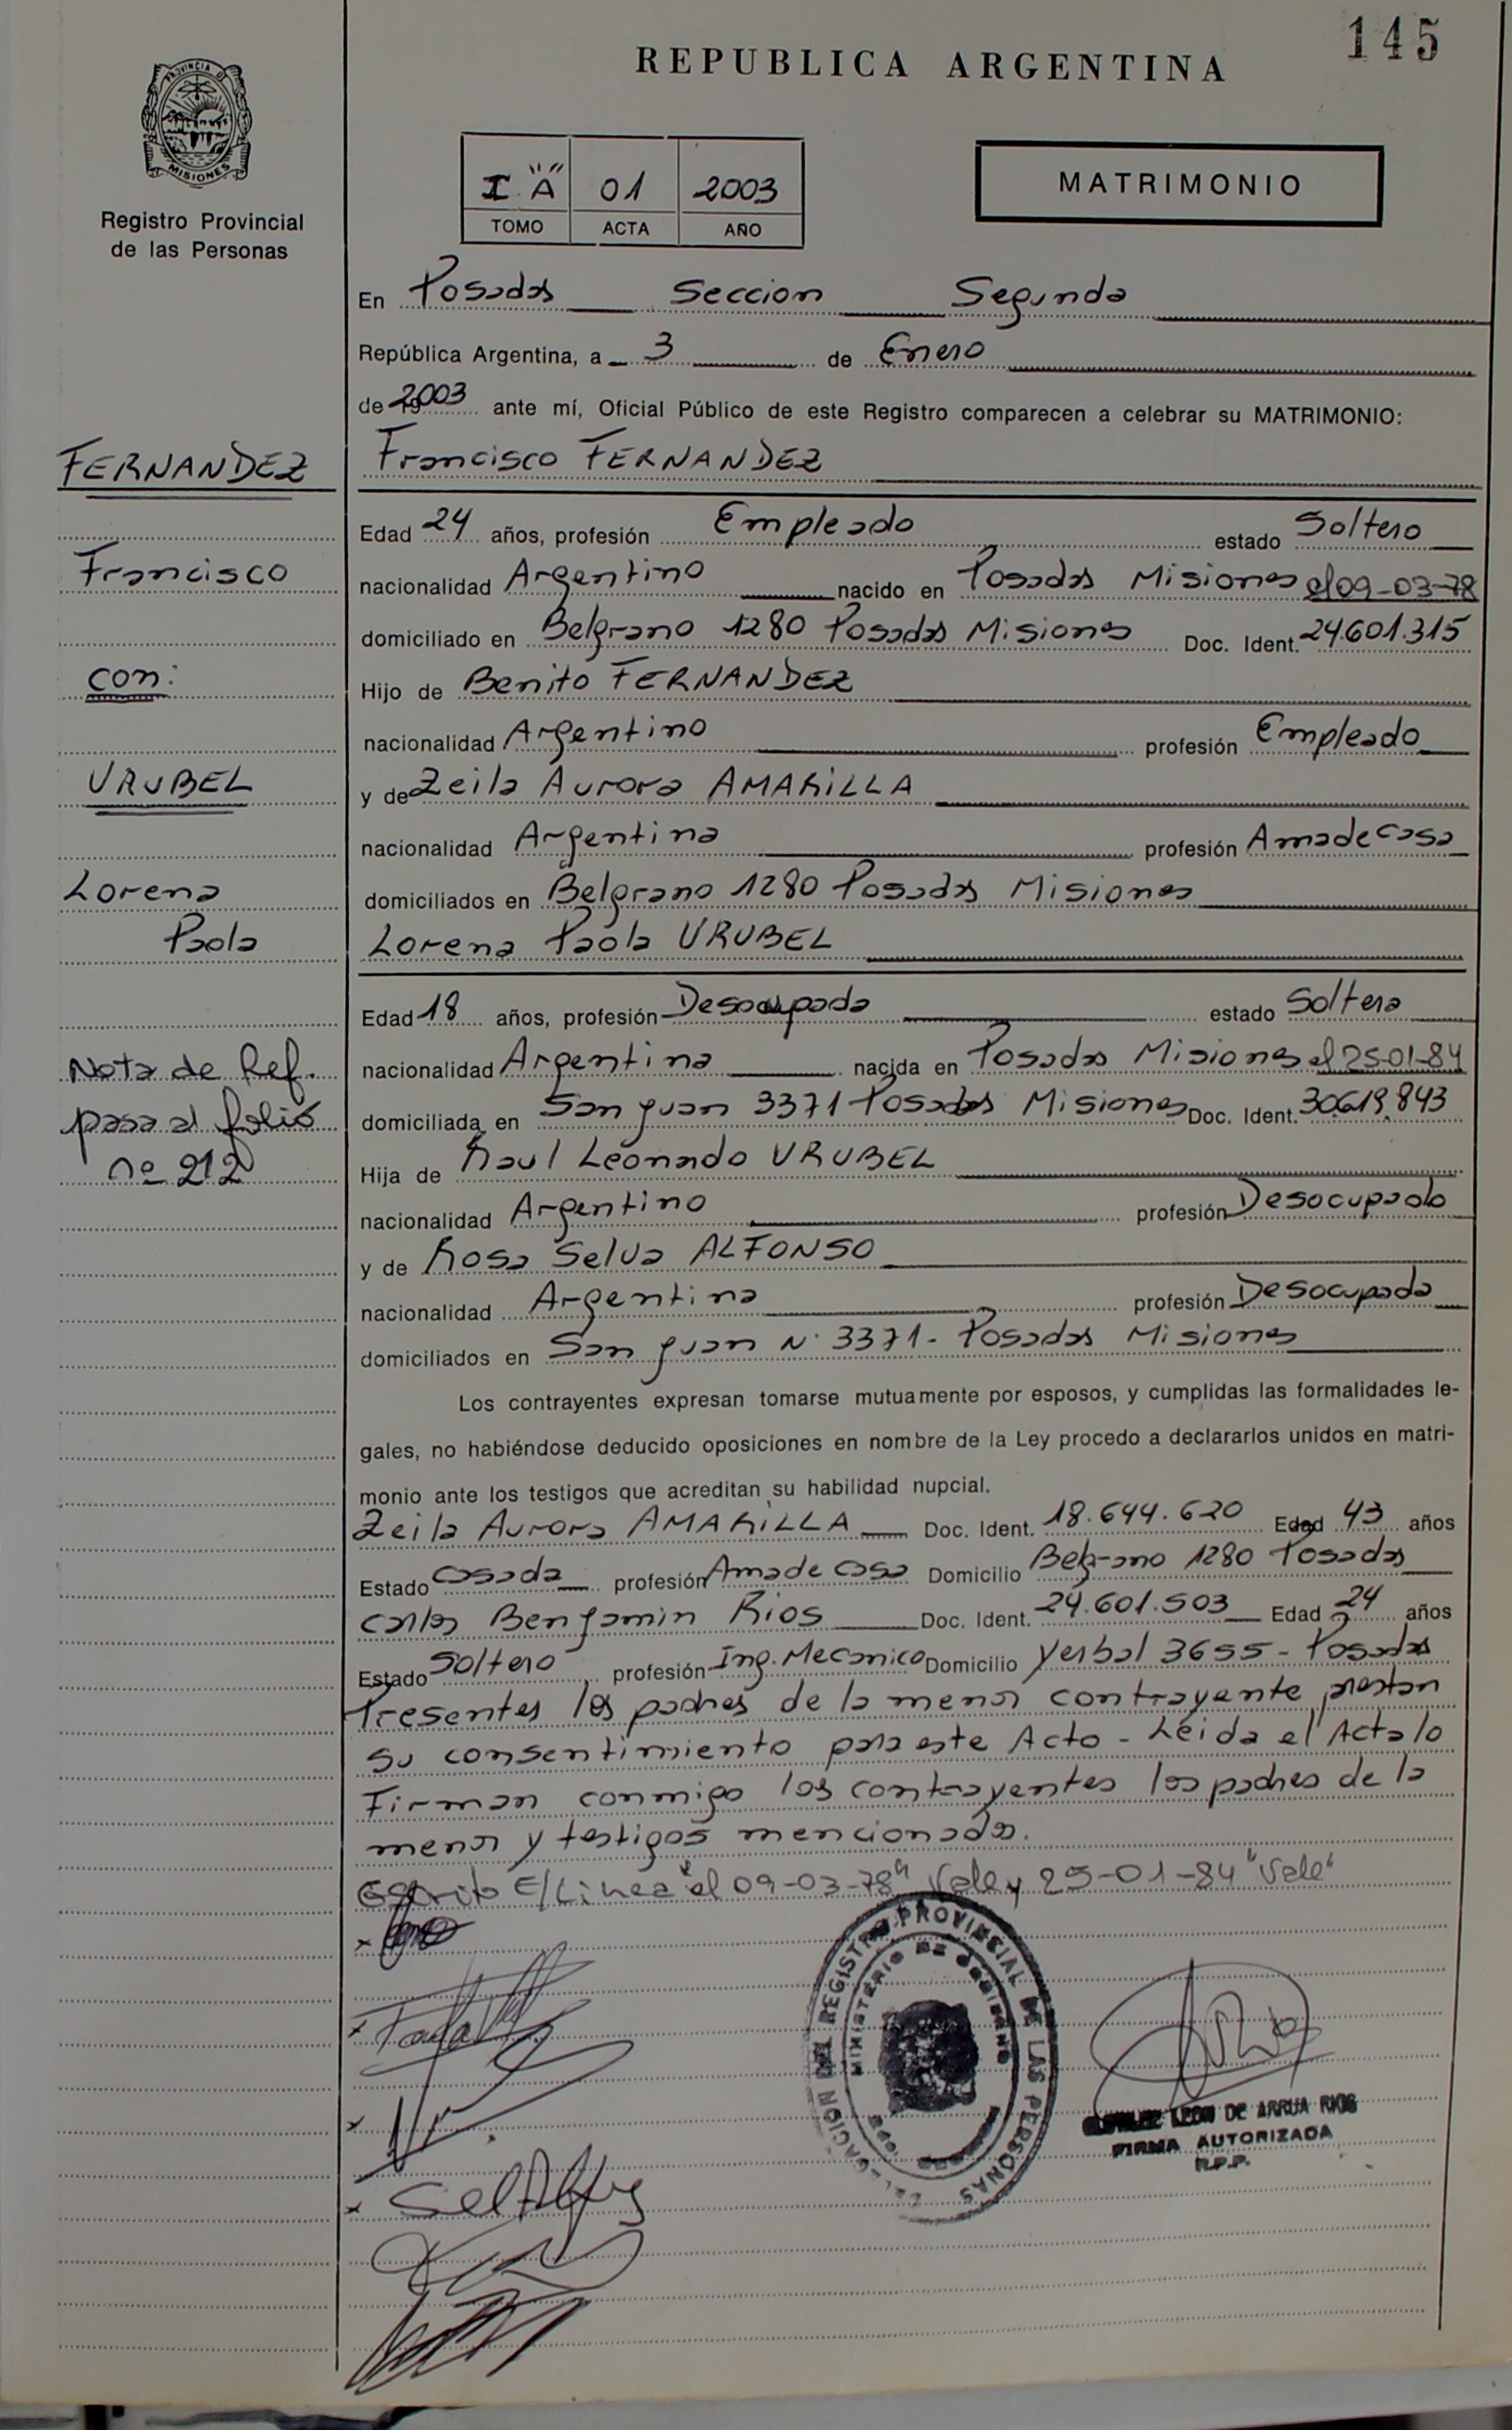 145
REPUBLICA ARGENTINA
PROVINCIA D
MISIONES
Registro Provincial
de las Personas
I "A" 01 2003
TOMO ACTA AÑO
MATRIMONIO
En Posadas Seccion Segunda
República Argentina, a 3 de Enero
de 2003 ante mí, Oficial Público de este Registro comparecen a celebrar su MATRIMONIO:
FERNANDEZ
Francisco FERNANDEZ
Edad 24 años, profesión Empleado estado Soltero
Francisco
nacionalidad Argentino nacido en Posadas Misiones el 09-03-78
domiciliado en Belgrano 1280 Posadas Misiones Doc. Ident. 24.601.315
con:
Hijo de Benito FERNANDEZ
nacionalidad Argentino profesión Empleado
URUBEL
y de Zeila Aurora AMARILLA
nacionalidad Argentina profesión Ama de casa
Lorena
domiciliados en Belgrano 1280 Posadas Misiones
Paola
Lorena Paola URUBEL
Edad 18 años, profesión Desocupada estado Soltera
Nota de Ref.
nacionalidad Argentina nacida en Posadas Misiones el 25-01-84
pasa al folio
domiciliada en San Juan 3371 Posadas Misiones Doc. Ident. 30.619.843
nº 212
Hija de Raul Leonardo URUBEL
nacionalidad Argentino profesión Desocupado
y de Rosa Selva ALFONSO
nacionalidad Argentina profesión Desocupada
domiciliados en San Juan N° 3371 - Posadas Misiones
Los contrayentes expresan tomarse mutuamente por esposos, y cumplidas las formalidades le-
gales, no habiéndose deducido oposiciones en nombre de la Ley procedo a declararlos unidos en matri-
monio ante los testigos que acreditan su habilidad nupcial.
Zeila Aurora AMARILLA Doc. Ident. 18.644.620 Edad 43 años
Estado Casada profesión Ama de casa Domicilio Belgrano 1280 Posadas
Carlos Benjamin Rios Doc. Ident. 24.601.503 Edad 24 años
Estado Soltero profesión Ing. Mecanico Domicilio Yerbal 3655 - Posadas
Presentes los padres de la menor contrayente prestan
su consentimiento para este Acto - Leida el Acta lo
Firman conmigo los contrayentes los padres de la
menor y testigos mencionados.
Escrito E/Linea "el 09-03-78" Vale y 25-01-84 "Vale"
DELEGACION DEL REGISTRO PROVINCIAL DE LAS PERSONAS
MINISTERIO DE GOBIERNO
LEON DE ARRUA RIOS
FIRMA AUTORIZADA
R.P.P.